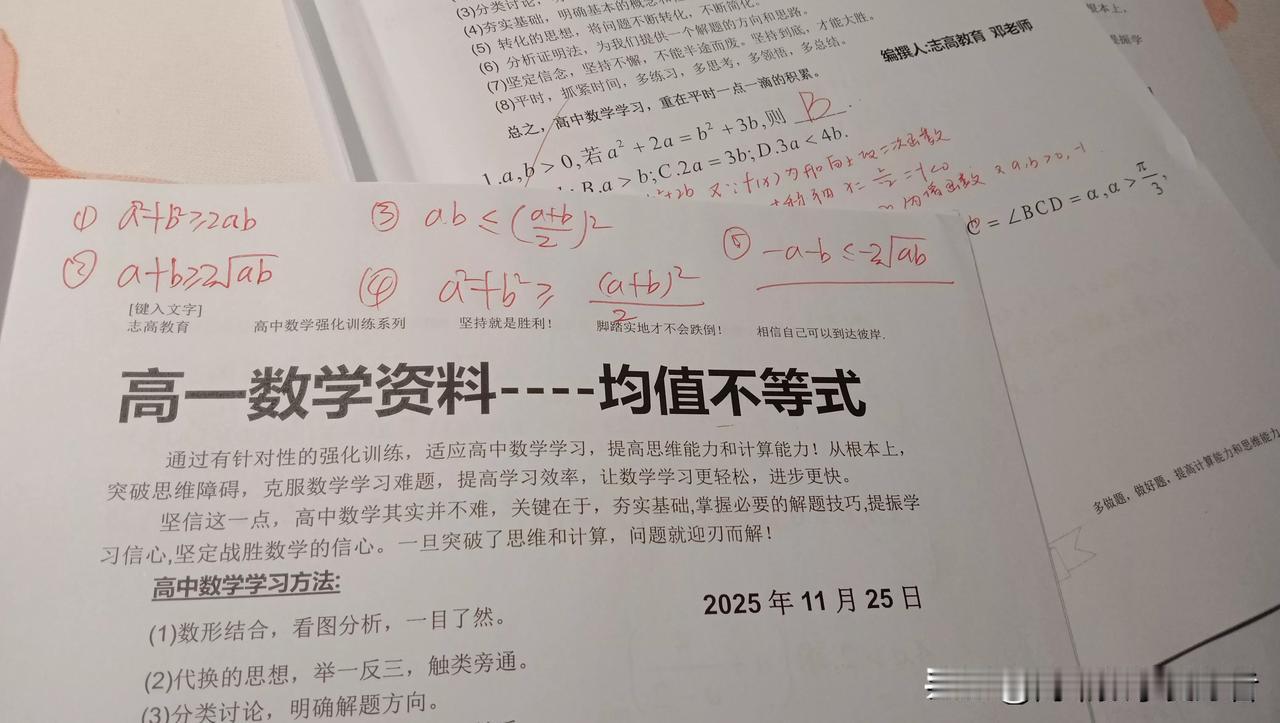 (3)分类讨论，
(4)夯实基础，明确基本的概念和
(5) 转化的思想，将问题不断转化，不断简化。
(6) 分析证明法，为我们提供一个解题的方向和思路。
(7)坚定信念，坚持不懈，不能半途而废。坚持到底，才能大胜。
(8)平时，抓紧时间，多练习，多思考，多领悟，多总结。
编撰人:志高教育 邓老师
总之，高中数学学习，重在平时一点一滴的积累。
1.a,b > 0,若 a² + 2a = b² + 3b,则 B .
B.a > b;C.2a = 3b;D.3a < 4b.
= ∠BCD = α,α > π/3,
① a²+b²≥2ab ③ ab ≤ (a+b/2)² ⑤ -a-b ≤ -2√ab
② a+b≥2√ab ④ a²+b² ≥ (a+b)²/2
[键入文字]
志高教育 高中数学强化训练系列 坚持就是胜利！ 脚踏实地才不会跌倒！ 相信自己可以到达彼岸.
高一数学资料----均值不等式
通过有针对性的强化训练，适应高中数学学习，提高思维能力和计算能力！从根本上，
突破思维障碍，克服数学学习难题，提高学习效率，让数学学习更轻松，进步更快。
坚信这一点，高中数学其实并不难，关键在于，夯实基础,掌握必要的解题技巧,提振学
习信心,坚定战胜数学的信心。一旦突破了思维和计算，问题就迎刃而解！
高中数学学习方法:
2025 年 11 月 25 日
(1)数形结合，看图分析，一目了然。
(2)代换的思想，举一反三，触类旁通。
(3)分类讨论，明确解题方向。
多做题，做好题，提高计算能力和思维能力